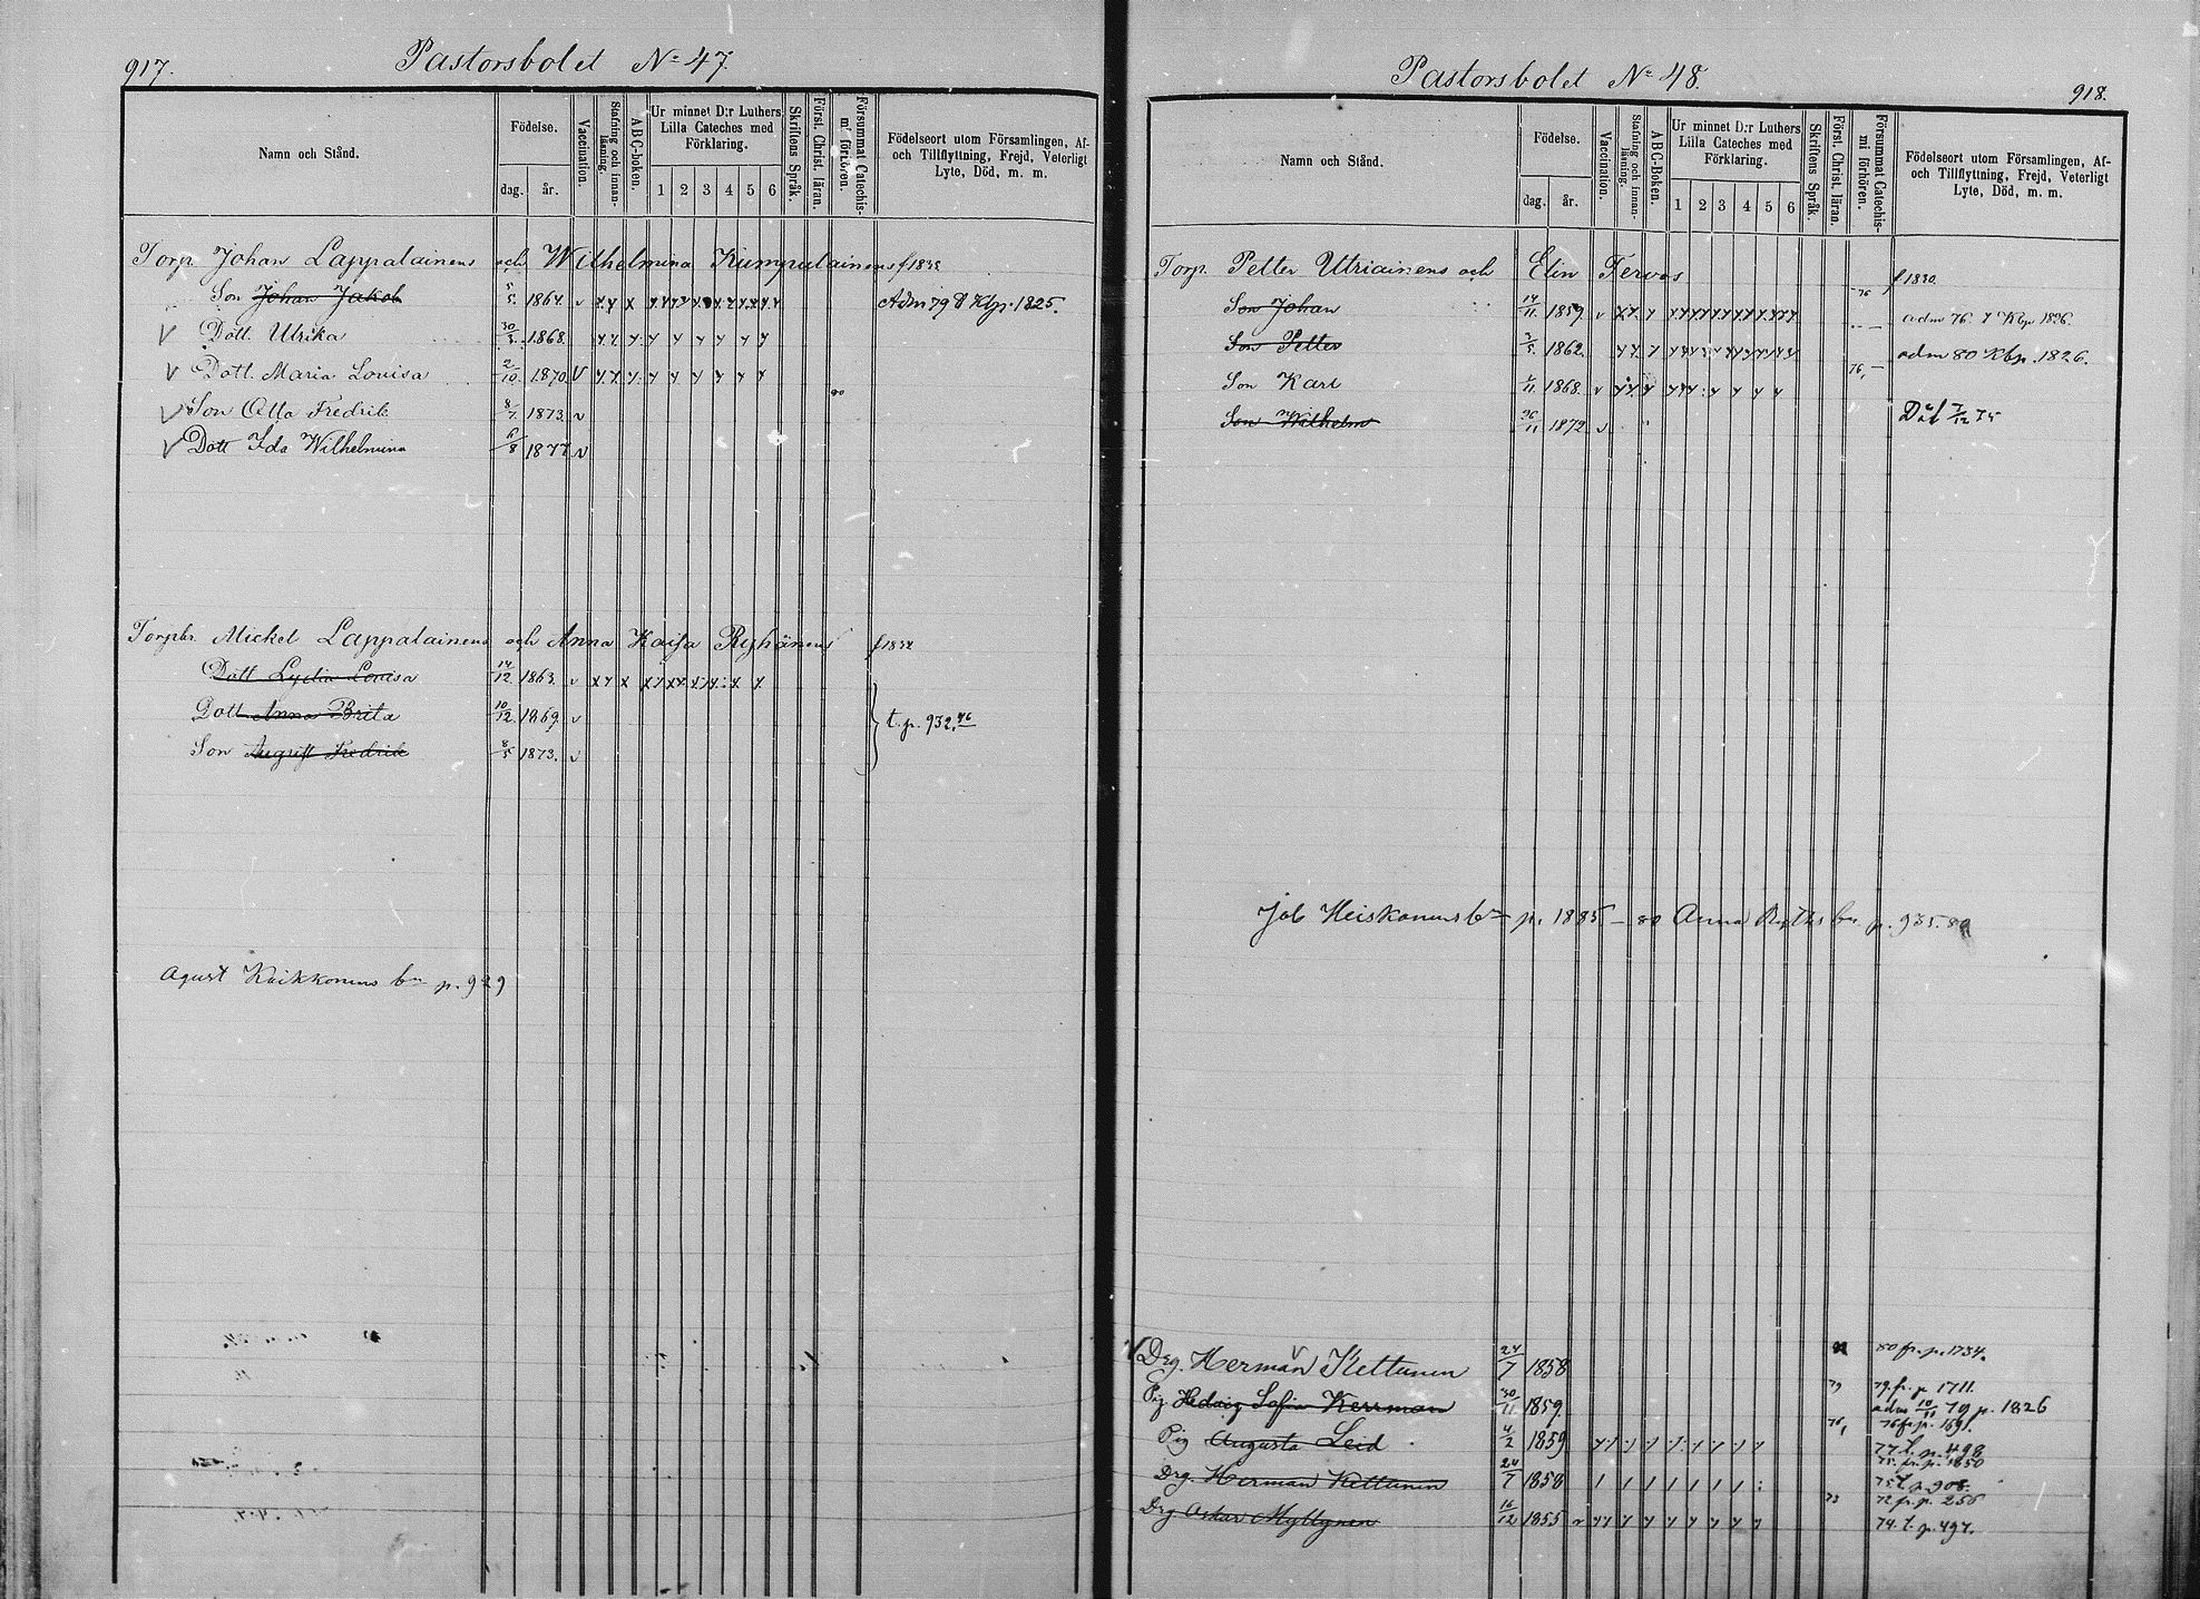 917.
Pastorsbolet No 47.
Namn och Stånd.
Födelse.
dag. år.
Vaccination.
Stafning och innanläsning.
ABC-boken.
Ur minnet D:r Luthers Lilla Cateches med Förklaring.
1 2 3 4 5 6
Skriftens Språk.
Först. Christ. läran.
Försummat Catechismi förhören.
Födelseort utom Församlingen, Af- och Tillflyttning, Frejd, Veterligt Lyte, Död, m. m.
Torp. Johan Lappalainens och Wilhelmina Kumpulainens f 1838
Son Johan Jakob 5/5. 1864. Adm 79 Kbp. 1825.
Dott. Ulrika 30/3. 1868.
Dott. Maria Lovisa 2/10. 1870.
80
Son Otto Fredrik 8/7. 1873
Dott Ida Wilhelmina 6/8 1877
Torphr. Mickel Lappalainens och Anna Kaisa Ryhänens f 1832
Dott Lydia Lovisa 14/12. 1863.
Dott Anna Brita 10/12. 1869. t. p. 932. 76
Son August Fredrik 8/5 1873.
Agust Kuikkonens bn p. 929
Pastorsbolet No 48.
918.
Namn och Stånd.
Födelse.
dag. år.
Vaccination.
Stafning och innanläsning.
ABC-Boken.
Ur minnet D:r Luthers Lilla Cateches med Förklaring.
1 2 3 4 5 6
Skriftens Språk.
Först. Christ. läran.
Försummat Catechismi förhören.
Födelseort utom Församlingen, Af- och Tillflyttning, Frejd, Veterligt Lyte, Död, m. m.
Torp. Petter Utriainens och Elin Tervos f 1830.
76
Son Johan 14/11. 1859. adm 76. Kbp 1826.
Son Petter 3/5. 1862. adm 80 Kbp. 1826.
76,
Son Karl 1/11 1868.
Son Wilhelm 26/11 1872. Död 7/12 75
Job Heiskanens bn p. 1885 - 80 Anna Ryths bn p. 935. 80
Drg. Herman Kettunen 24/7 1858 80 fr. p. 1734.
Pig. Hedvig Sofia Kerrman 30/11 1859. 79 79. fr. p 1711.
adm 10/11 79 p. 1826
Pig Augusta Leid 4/2 1859 76, 76 fr. p. 1691.
77 t. p. 498
Drg. Herman Kettunen 24/7 1858 75. fr. p. 1850
75 t. p. 908.
Drg Oskar Myllynen 16/12 1855 73 72 fr. p. 256
74. t. p. 497.